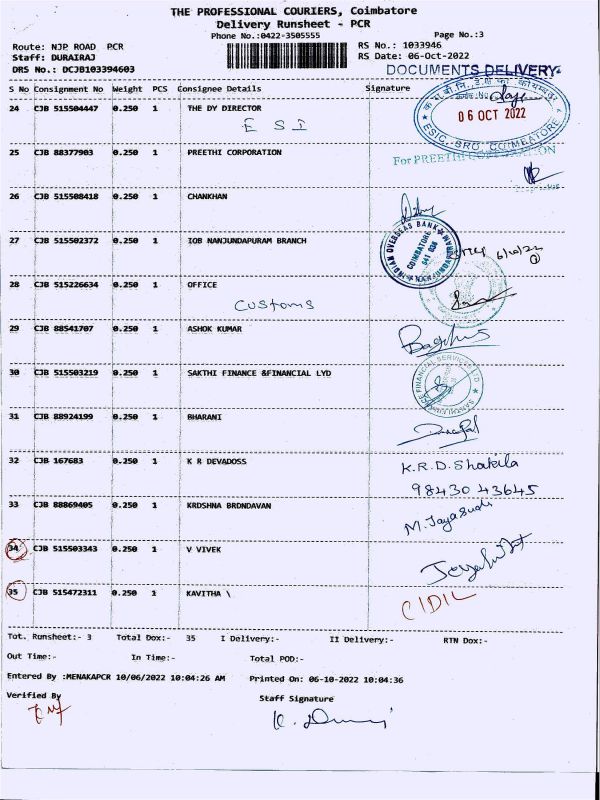 THE PROFESSIONAL COURIERS, Coimbatore
Delivery Runsheet - PCR
Phone No.:0422-3505555 Page No.:3
Route: NJP ROAD PCR RS No.: 1033946
Staff: DURAIRAJ RS Date: 06-Oct-2022
DRS No.: DCJB103394603 DOCUMENTS DELIVERY
S No Consignment No Weight PCS Consignee Details Signature
24 CJB 515504447 0.250 1 THE DY DIRECTOR
E S I
06 OCT 2022
ESIC, SRO, COIMBATORE
25 CJB 88377903 0.250 1 PREETHI CORPORATION
For PREETHI CORPORATION
26 CJB 515508418 0.250 1 CHANKHAN
27 CJB 515502372 0.250 1 IOB NANJUNDAPURAM BRANCH
INDIAN OVERSEAS BANK
COIMBATORE
641 036
6/10/22
28 CJB 515226634 0.250 1 OFFICE
Customs
29 CJB 88541707 0.250 1 ASHOK KUMAR
30 CJB 515503219 0.250 1 SAKTHI FINANCE &FINANCIAL LYD
SAKTHI FINANCE FINANCIAL SERVICES LTD
31 CJB 88924199 0.250 1 BHARANI
32 CJB 167683 0.250 1 K R DEVADOSS K.R.D. Shakila
98430 43645
33 CJB 88869405 0.250 1 KRDSHNA BRDNDAVAN M. Jayasudi
34 CJB 515503343 0.250 1 V VIVEK
35 CJB 515472311 0.250 1 KAVITHA \
Tot. Runsheet:- 3 Total Dox:- 35 I Delivery:- II Delivery:- RTN Dox:-
Out Time:- In Time:- Total POD:-
Entered By :MENAKAPCR 10/06/2022 10:04:26 AM Printed On: 06-10-2022 10:04:36
Verified By Staff Signature